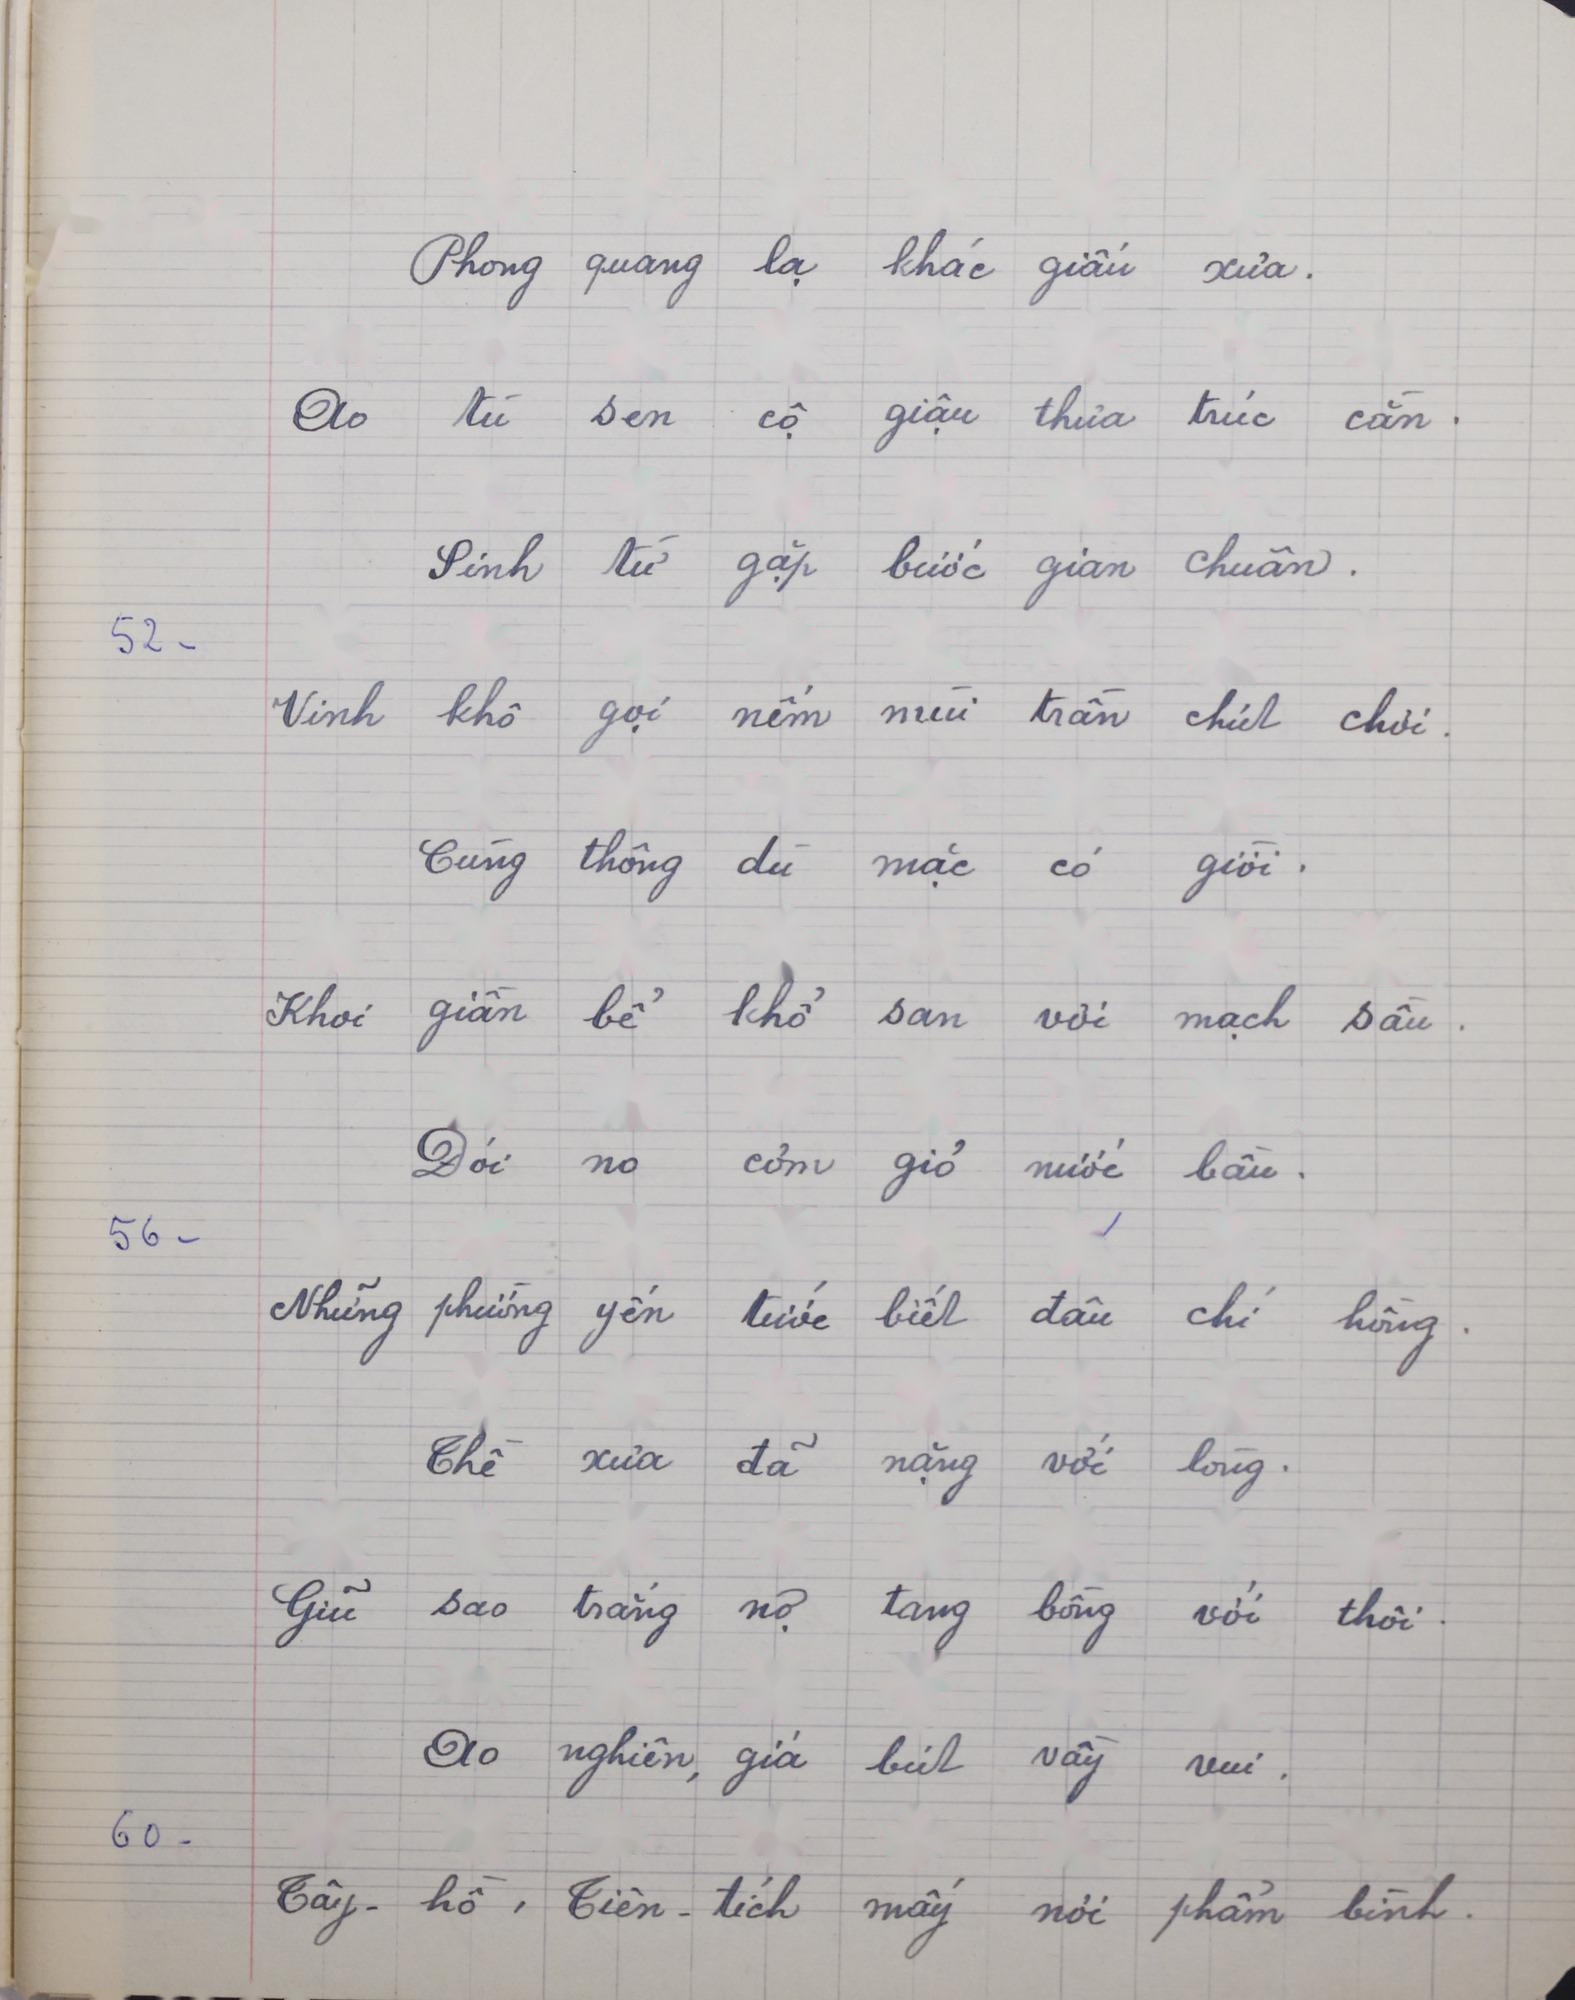 Phong quang lạ khác giấu xưa.
Ao tù sen cộ giậu thưa trúc cằn.
Sinh từ gặp bước gian chuân.
52-
Vinh khô gọi nếm mùi trần chút chơi.
Cùng thông dù mặc có giời.
Khơi giần bể khổ san vơi mạch sầu.
Đói no cơm giỏ nước bầu.
56-
Những phường yến tước biết đâu chí hồng.
Thề xưa đã nặng với lòng.
Giữ sao trắng nợ tang bồng với thôi.
Ao nghiên, giá bút vầy vui.
60-
Tây-hồ, Tiên-tích mấy nơi phẩm bình.